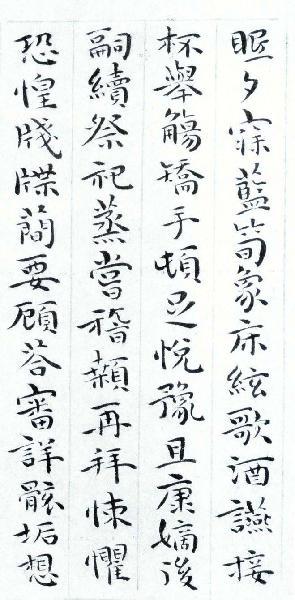 眠夕寐藍筍象床絃歌酒讌接
杯舉觴矯手頓足悅豫且康嫡後
嗣續祭祀蒸嘗稽顙再拜悚懼
恐惶牋牒簡要顧荅審詳骸垢想